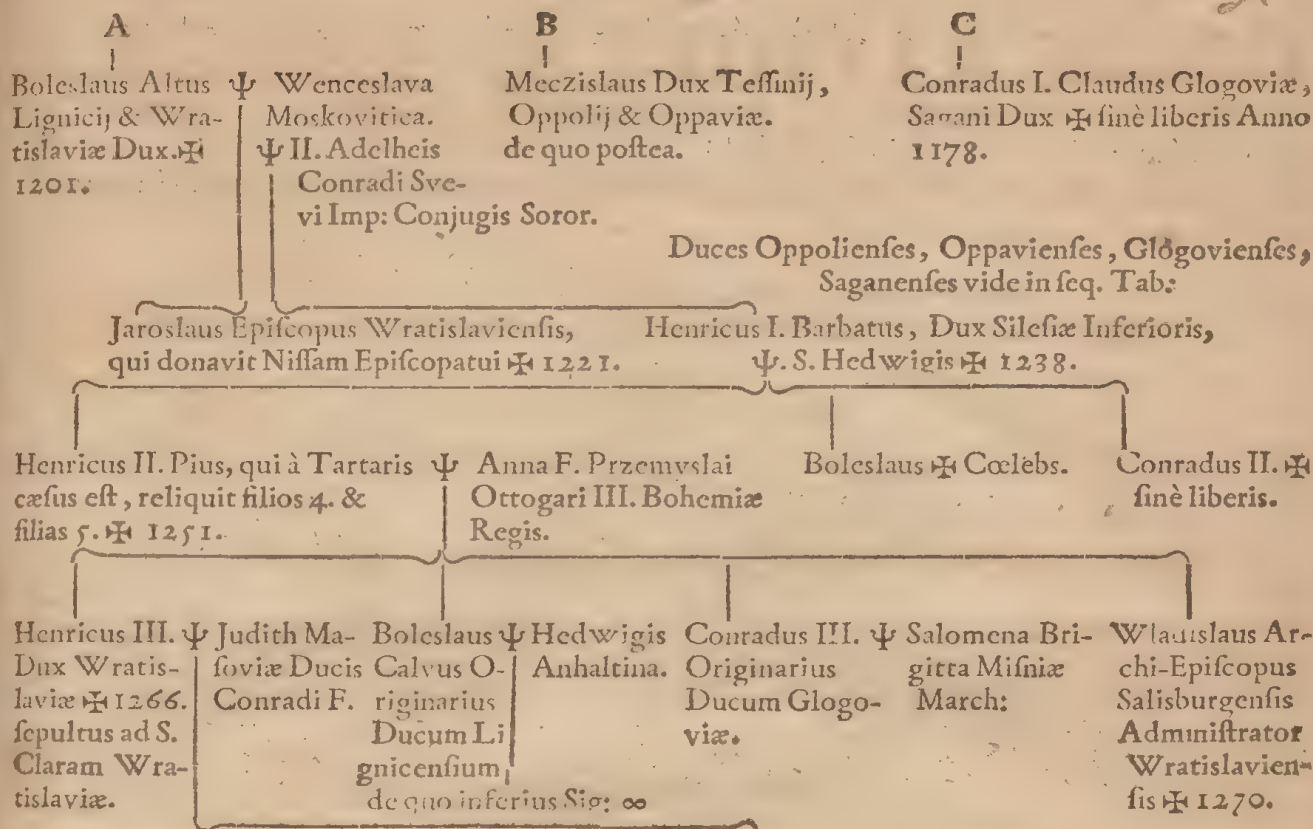 A B C
Boleslaus Altus Ψ Wenceslava
Lignicij & Wra- Moskovitica.
tislaviæ Dux. ✠ Ψ II. Adelheis
1201. Conradi Sve-
vi Imp: Conjugis Soror.
Meczislaus Dux Teſſinij,
Oppolij & Oppaviæ.
de quo poſtea.
Conradus I. Claudus Glogoviæ,
Sagani Dux ✠ ſinè liberis Anno
1178.
Duces Oppolienſes, Oppavienſes, Glogovienſes,
Saganenſes vide in ſeq. Tab:
Jaroslaus Epiſcopus Wratislavienſis,
qui donavit Niſſam Epiſcopatui ✠ 1221.
Henricus I. Barbatus, Dux Sileſiæ Inferioris,
Ψ. S. Hedwigis ✠ 1238.
Henricus II. Pius, qui à Tartaris Ψ
cæſus eſt, reliquit filios 4. &
filias 5. ✠ 1251.
Anna F. Przemyslai
Ottogari III. Bohemiæ
Regis.
Boleslaus ✠ Cœlebs.
Conradus II. ✠
ſinè liberis.
Henricus III. Ψ
Dux Wratis-
laviæ ✠ 1266.
ſepultus ad S.
Claram Wra-
tislaviæ.
Judith Ma-
ſoviæ Ducis
Conradi F.
Boleslaus Ψ
Calvus O-
riginarius
Ducum Li
gnicenſium,
de quo inferius Sig: ∞
Hedwigis
Anhaltina.
Conradus III. Ψ
Originarius
Ducum Glogo-
viæ.
Salomena Bri-
gitta Miſniæ
March:
Wladislaus Ar-
chi-Epiſcopus
Salisburgenſis
Adminiſtrator
Wratislavien-
ſis ✠ 1270.